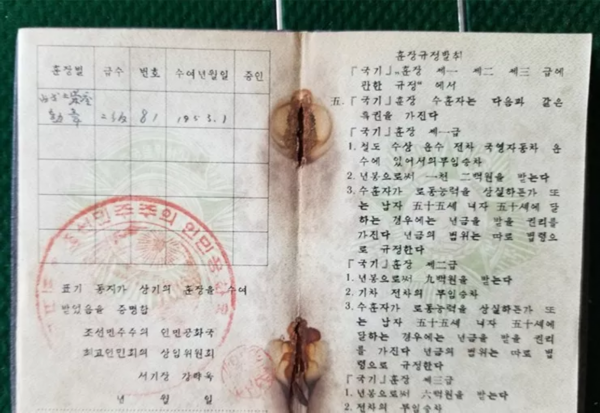 훈장별 급수 번호 수여년월일 증인
勳章 2급 81 1953.1
조선민주주의 인민공화국
표기 동지가 상기의 훈장을 수여
받었음을 증명함
조선민주주의 인민공화국
최고인민회의 상임위원회
서기장 강량욱
년 월 일
훈장규정발취
『국기』훈장 제一 제二 제三급에
관한 규정 에서
五. 『국기』훈장 수훈자는 다음과 같은
특권을 가진다
『국기』훈장 제一급
1. 철도 수상 운수 전차 국영자동차 운
수에 있어서의 무임승차
2. 년봉으로써 一천 二백원을 받는다
3. 수훈자가 로동능력을 상실하든가 또
는 남자 五十五세 녀자 五十세에 달
하는 경우에는 년금을 받을 권리를
가진다 년금의 범위는 따로 법령으
로 규정한다
『국기』훈장 제二급
1. 년봉으로써 九백원을 받는다
2. 기차 전차의 무임승차
3. 수훈자가 로동능력을 상실하든가 또
는 남자 五十五세 녀자 五十세에
달하는 경우에는 년금을 받을 권리
를 가진다 년금의 범위는 따로 법
령으로 규정한다
『국기』훈장 제三급
1. 년봉으로써 六백원을 받는다
2. 전차의 무임승차